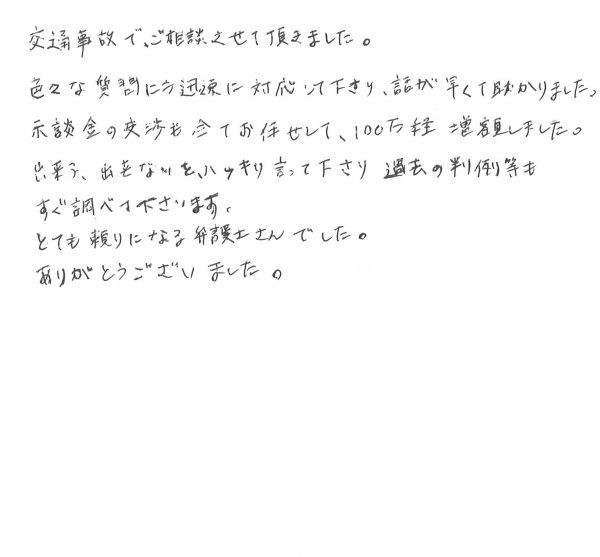 交通事故で、ご相談させて頂きました。
色々な質問にも迅速に対応して下さり、話が早くて助かりました。
示談金の交渉も全てお任せして、100万程増額しました。
出来る、出来ないを、ハッキリ言って下さり過去の判例等も
すぐ調べて下さいます。
とても頼りになる弁護士さんでした。
ありがとうございました。